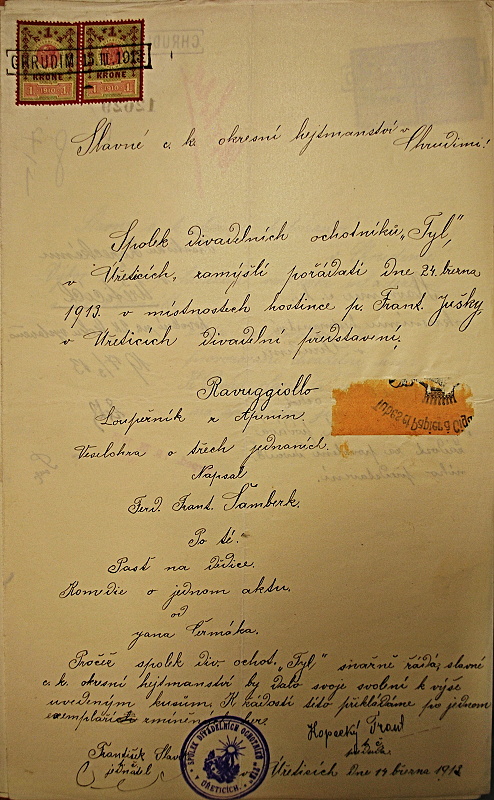 CHRUDIM
1 KRONE 1
1 1910 1
1 KRONE 1
1 1910 1
Slavné c. k. okresní hejtmanství v
Chrudimi!
Spolek divadelních ochotníků „Tyl",
v Úřeticích, zamýšlí pořádati dne 24. března
1913. v místnostech hostince p. Frant.
v Úřeticích divadelní představení;
Ravuggiollo
Loupežník z Apenin.
Veselohra o třech jednáních.
Napsal
Ferd. Frant. Šamberk.
Po té:
Past na dědice.
Komedie o jednom aktu.
od
Jana Čermáka.
Pročež spolek div. ochot. „Tyl" žádá, slavné
c. k. okresní hejtmanství by dalo svoje svolení k výše
uvedeným kusům. K žádosti této přikládáme po jednom
Tubes et Papier à Ciga
František
jednatel
SPOLEK DIVADELNÍCH OCHOTNÍKŮ TYL
ÚŘETICÍCH
v Úřeticích dne 14 března 1913.